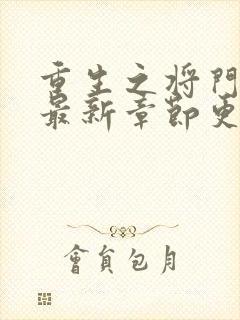 重生之将門
最新章節更
會員包月